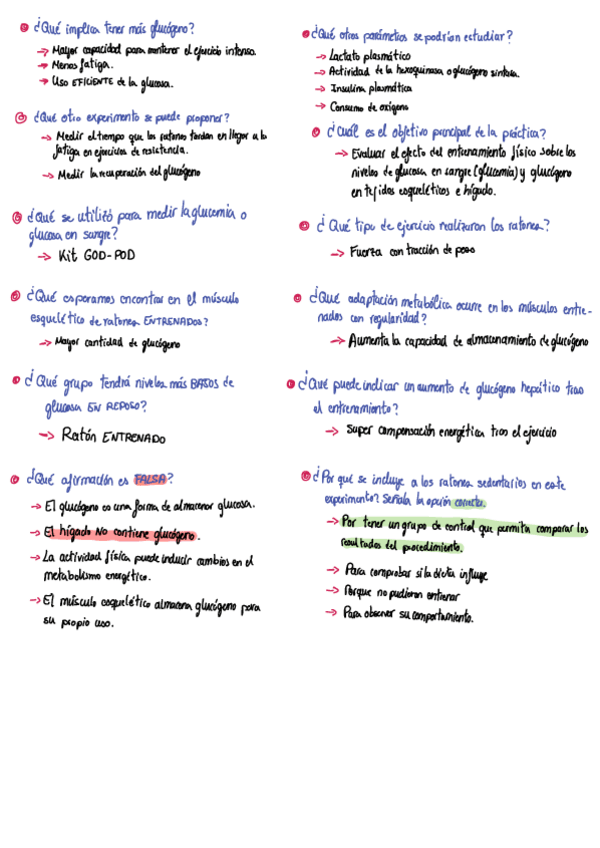 ¿Qué implica tener más glucógeno?
→ Mayor capacidad para mantener el ejercicio intenso.
→ Menos fatiga.
→ Uso EFICIENTE de la glucosa.
¿Qué otro experimento se puede proponer?
→ Medir el tiempo que los ratones tardan en llegar a la
fatiga en ejercicios de resistencia.
→ Medir la recuperación del glucógeno
¿Qué se utilitó para medir la glucemia o
glucosa en sangre?
→ Kit GOD-POD
¿Qué esperamos encontrar en el músculo
esquelético de ratones ENTRENADOS?
→ Mayor cantidad de glucógeno
¿Qué grupo tendrá niveles más BAJOS de
glucosa EN REPOSO?
→ Ratón ENTRENADO
¿Qué afirmación es FALSA?
→ El glucógeno es una forma de almacenar glucosa.
→ El hígado NO contiene glucógeno.
→ La actividad física puede inducir cambios en el
metabolismo energético.
→ El músculo esquelético almacena glucógeno para
su propio uso.
¿Qué otros parámetros se podrían estudiar?
→ Lactato plasmático
→ Actividad de la hexoquinasa o glucógeno sintasa.
→ Insulina plasmática
→ Consumo de oxígeno
¿Cuál es el objetivo principal de la práctica?
→ Evaluar el efecto del entrenamiento físico sobre los
niveles de glucosa en sangre (glucemia) y glucógeno
en tejidos esqueléticos e hígado.
¿Qué tipo de ejercicio realizaron los ratones?
→ Fuerza con tracción de peso
¿Qué adaptación metabólica ocurre en los músculos entre-
nados con regularidad?
→ Aumenta la capacidad de almacenamiento de glucógeno
¿Qué puede indicar un aumento de glucógeno hepático tras
el entrenamiento?
→ Super compensación energética tras el ejercicio
¿Por qué se incluye a los ratones sedentarios en este
experimento? Señala la opción correcta.
→ Por tener un grupo de control que permita comparar los
resultados del procedimiento.
→ Para comprobar si la dieta influye
→ Porque no pudieron entrenar
→ Para observar su comportamiento.